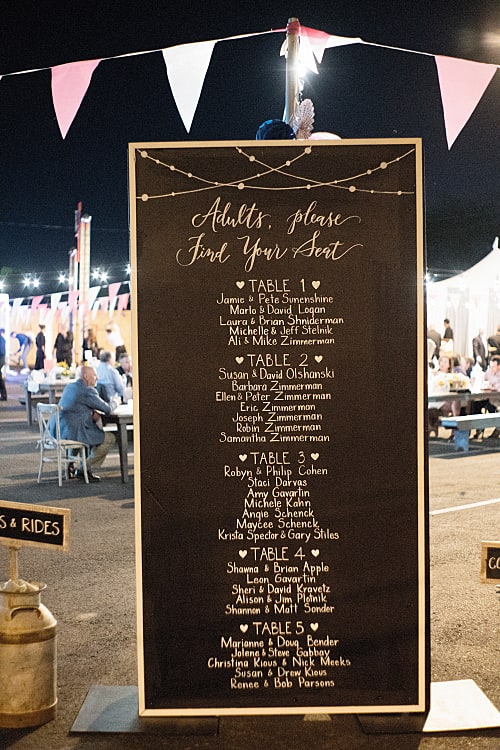 Adults, please
Find Your Seat
♥ TABLE 1 ♥
Jamie & Pete Sunenshine
Marla & David Logan
Laura & Brian Shniderman
Michelle & Jeff Stelnik
Ali & Mike Zimmerman
♥ TABLE 2 ♥
Susan & David Olshanski
Barbara Zimmerman
Ellen & Peter Zimmerman
Eric Zimmerman
Joseph Zimmerman
Robin Zimmerman
Samantha Zimmerman
♥ TABLE 3 ♥
Robyn & Philip Cohen
Staci Darvas
Amy Gavartin
Michele Kahn
Angie Schenck
Maycee Schenck
Krista Spector & Gary Stiles
♥ TABLE 4 ♥
Shawna & Brian Apple
Leon Gavartin
Sheri & David Kravetz
Alison & Jim Plotnik
Shannon & Matt Sonder
♥ TABLE 5 ♥
Marianne & Doug Bender
Jolene & Steve Gabbay
Christina Kious & Nick Meeks
Susan & Drew Kious
Renee & Bob Parsons
S & RIDES